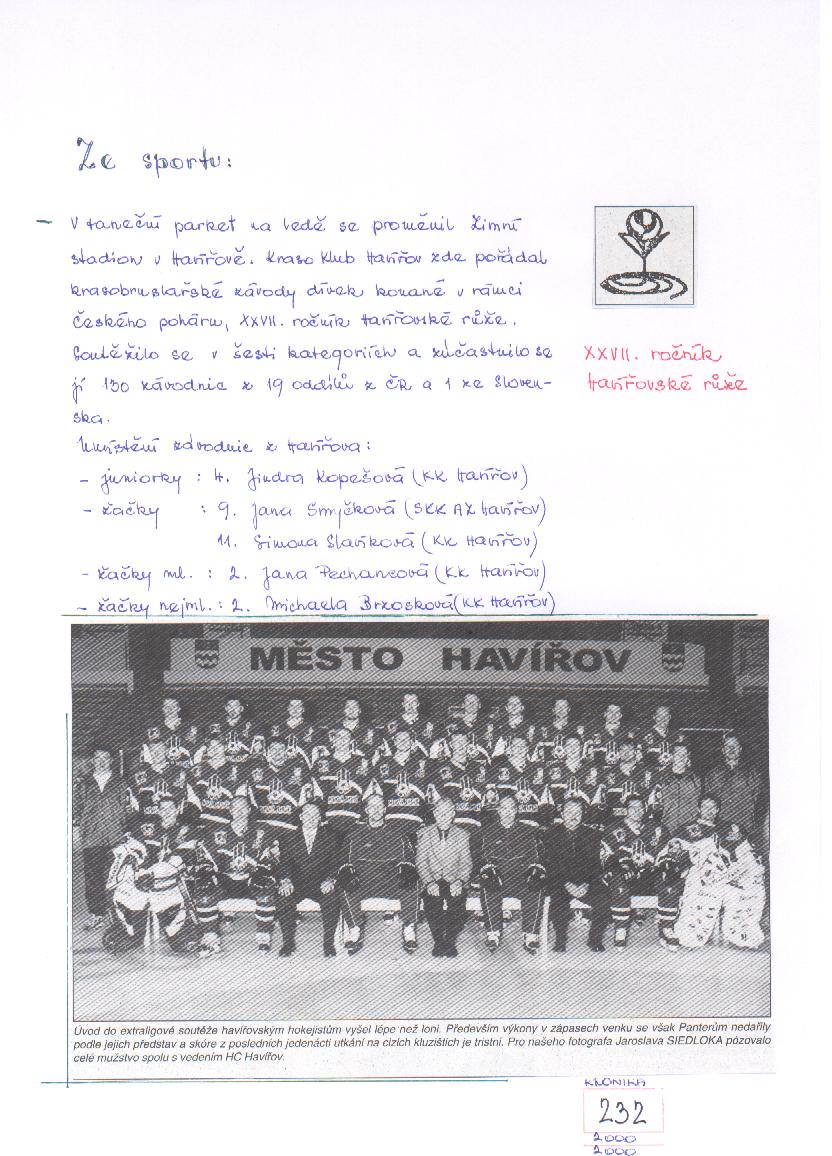 Ze sportu:
- V taneční parket na ledě se proměnil Zimní
stadion v Havířově. Kraso klub Havířov zde pořádal
krasobruslařské závody dívek konané v rámci
Českého poháru, XXVII. ročník Havířovské růže.
Soutěžilo se v šesti kategoriích a zúčastnilo se
jí 130 závodnic z 19 oddílů z ČR a 1 ze Sloven-
ska.
XXVII. ročník
Havířovské růže
Umístění závodnic z Havířova:
- juniorky : 4. Jindra Kopešová (KK Havířov)
- žačky : 9. Jana Smyčková (SKK AZ Havířov)
11. Simona Slavíková (KK Havířov)
- žačky ml. : 2. Jana Pechancová (KK Havířov)
- žačky nejml. : 2. Michaela Brzosková (KK Havířov)
MĚSTO HAVÍŘOV
Úvod do extraligové soutěže havířovským hokejistům vyšel lépe než loni. Především výkony v zápasech venku se však Panterům nedařily
podle jejich představ a skóre z posledních jedenácti utkání na cizích kluzištích je tristní. Pro našeho fotografa Jaroslava SIEDLOKA pózovalo
celé mužstvo spolu s vedením HC Havířov.
KRONIKA
232
2000
2000